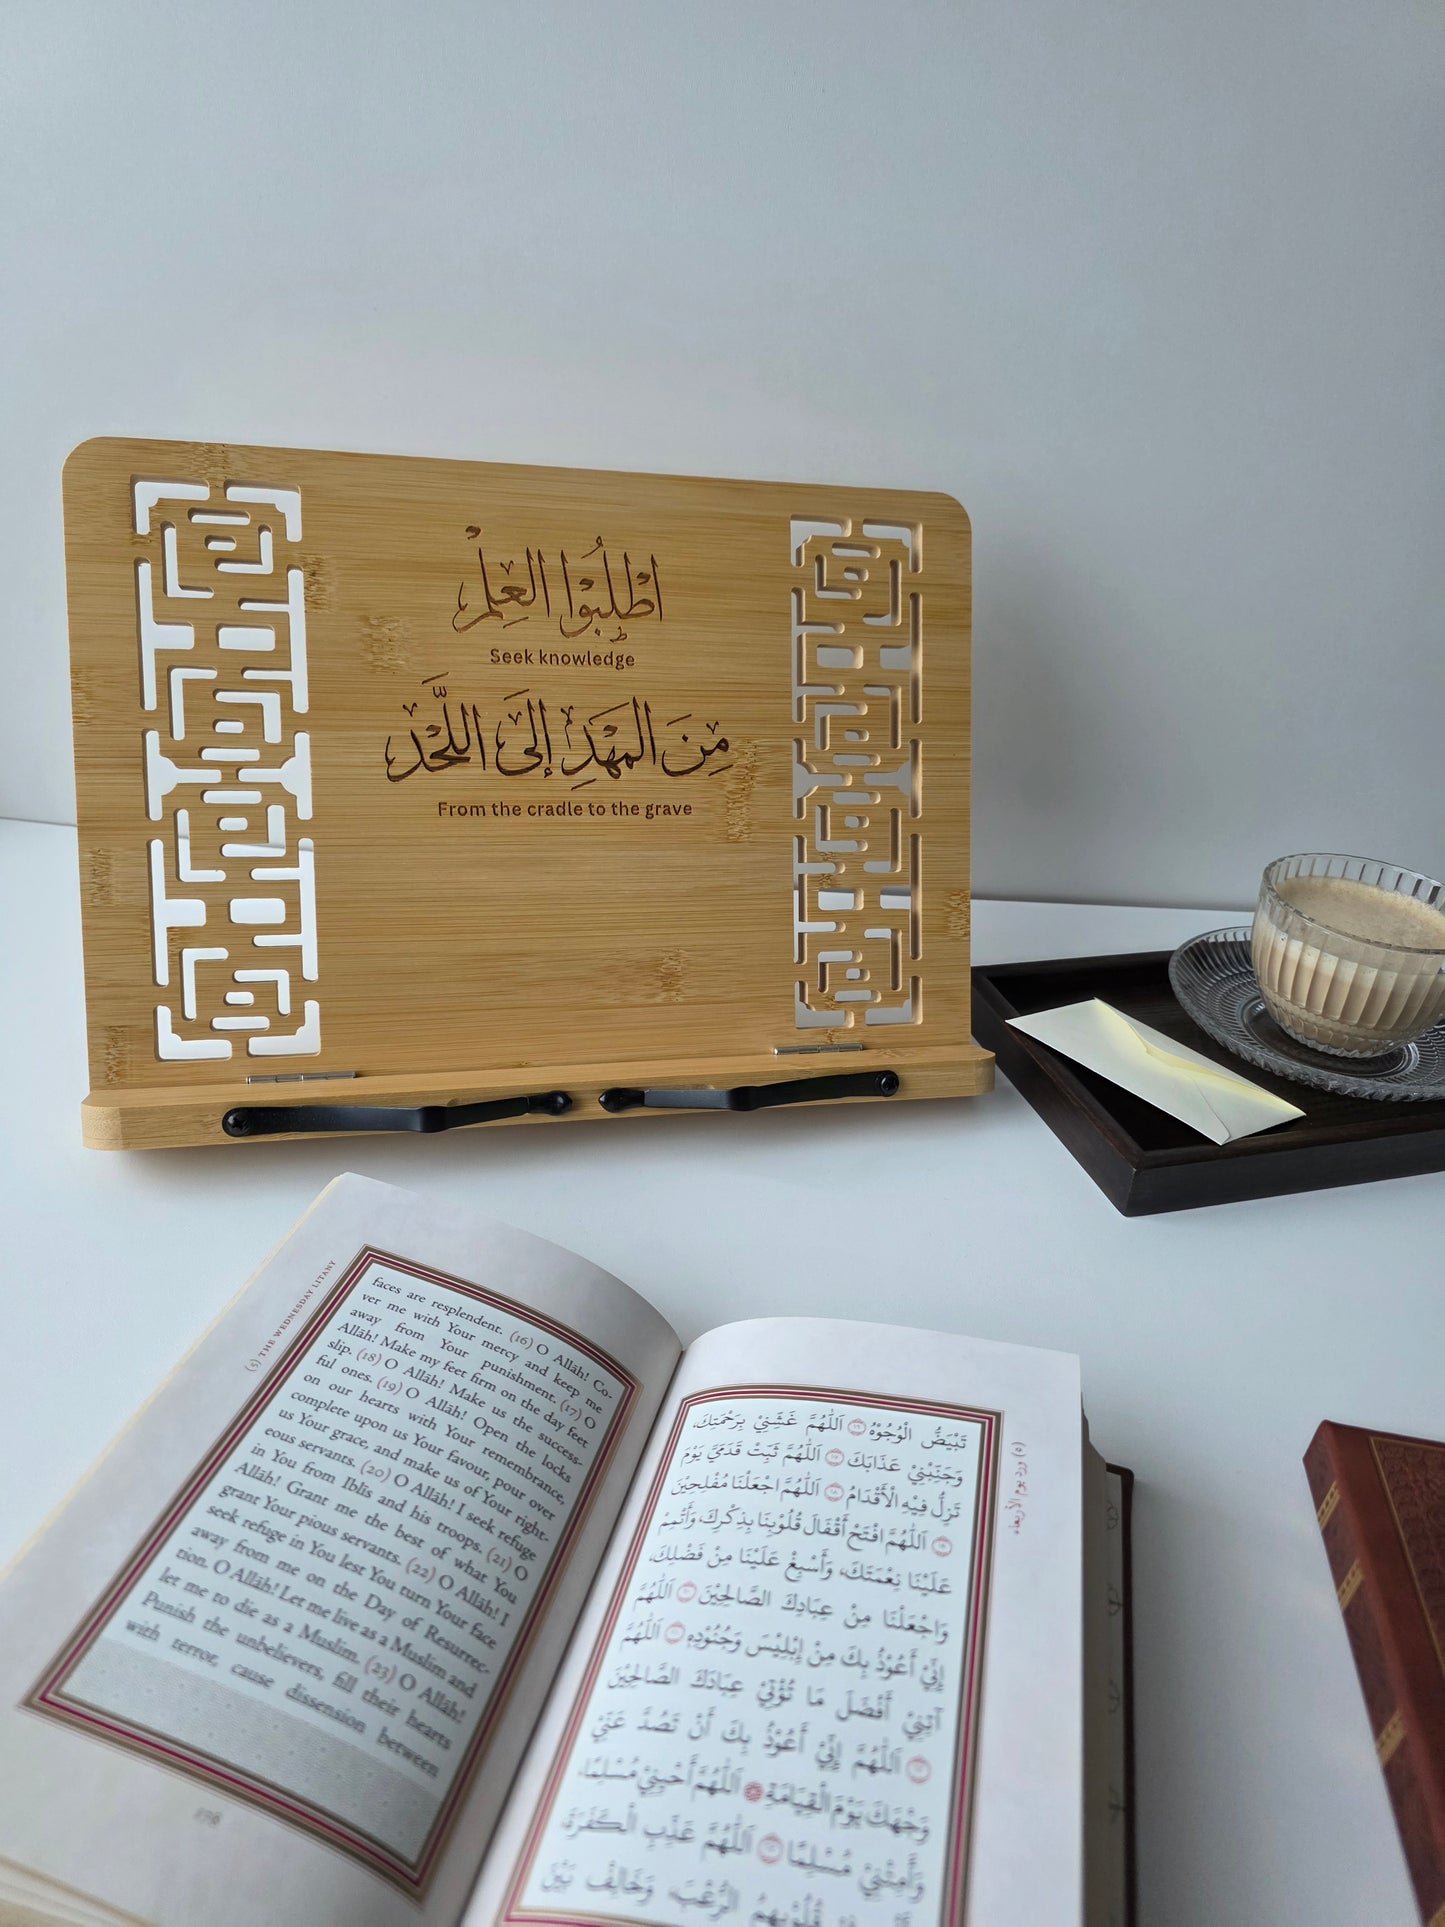 اُطْلُبُوا الْعِلْمَ
Seek knowledge
مِنَ الْمَهْدِ إِلَى اللَّحْدِ
From the cradle to the grave
(5) THE WEDNESDAY LITANY
faces are resplendent. (16) O Allāh! Co-
ver me with Your mercy and keep me
away from Your punishment. (17) O
Allāh! Make my feet firm on the day feet
slip. (18) O Allāh! Make us the success-
ful ones. (19) O Allāh! Open the locks
on our hearts with Your remembrance,
complete upon us Your favour, pour over
us Your grace, and make us of Your right-
eous servants. (20) O Allāh! I seek refuge
in You from Iblīs and his troops. (21) O
Allāh! Grant me the best of what You
grant Your pious servants. (22) O Allāh! I
seek refuge in You lest You turn Your face
away from me on the Day of Resurrec-
tion. O Allāh! Let me live as a Muslim and
let me to die as a Muslim. (23) O Allāh!
Punish the unbelievers, fill their hearts
with terror, cause dissension between
176
(٥) وِرْدُ يَوْمِ الْأَرْبِعَاءِ
تَبْيَضُّ الْوُجُوْهُ ١٦ اَللّٰهُمَّ غَشِّنِيْ بِرَحْمَتِكَ،
وَجَنِّبْنِيْ عَذَابَكَ ١٧ اَللّٰهُمَّ ثَبِّتْ قَدَمَيَّ يَوْمَ
تَزِلُّ فِيْهِ الْأَقْدَامُ ١٨ اَللّٰهُمَّ اجْعَلْنَا مُفْلِحِيْنَ
١٩ اَللّٰهُمَّ افْتَحْ أَقْفَالَ قُلُوْبِنَا بِذِكْرِكَ، وَأَتْمِمْ
عَلَيْنَا نِعْمَتَكَ، وَأَسْبِغْ عَلَيْنَا مِنْ فَضْلِكَ،
وَاجْعَلْنَا مِنْ عِبَادِكَ الصَّالِحِيْنَ ٢٠ اَللّٰهُمَّ
إِنِّيْ أَعُوْذُ بِكَ مِنْ إِبْلِيْسَ وَجُنُوْدِهِ ٢١ اَللّٰهُمَّ
آتِنِيْ أَفْضَلَ مَا تُؤْتِيْ عِبَادَكَ الصَّالِحِيْنَ
٢٢ اَللّٰهُمَّ إِنِّيْ أَعُوْذُ بِكَ أَنْ تَصُدَّ عَنِّيْ
وَجْهَكَ يَوْمَ الْقِيَامَةِ اَللّٰهُمَّ أَحْيِنِيْ مُسْلِمًا،
وَأَمِتْنِيْ مُسْلِمًا ٢٣ اَللّٰهُمَّ عَذِّبِ الْكَفَرَةَ،
قُلُوْبِهِمُ الرُّعْبَ، وَخَالِفْ بَيْنَ